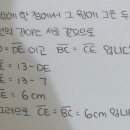 밖에 한 점에서 그 원에 그은 두
선의 길이는 서로 같으므로
= DE 이고 BC = CE 입니
E = 13 - DE
= 13 - 7
E = 6cm
러므로 CE = BC = 6cm 입니다